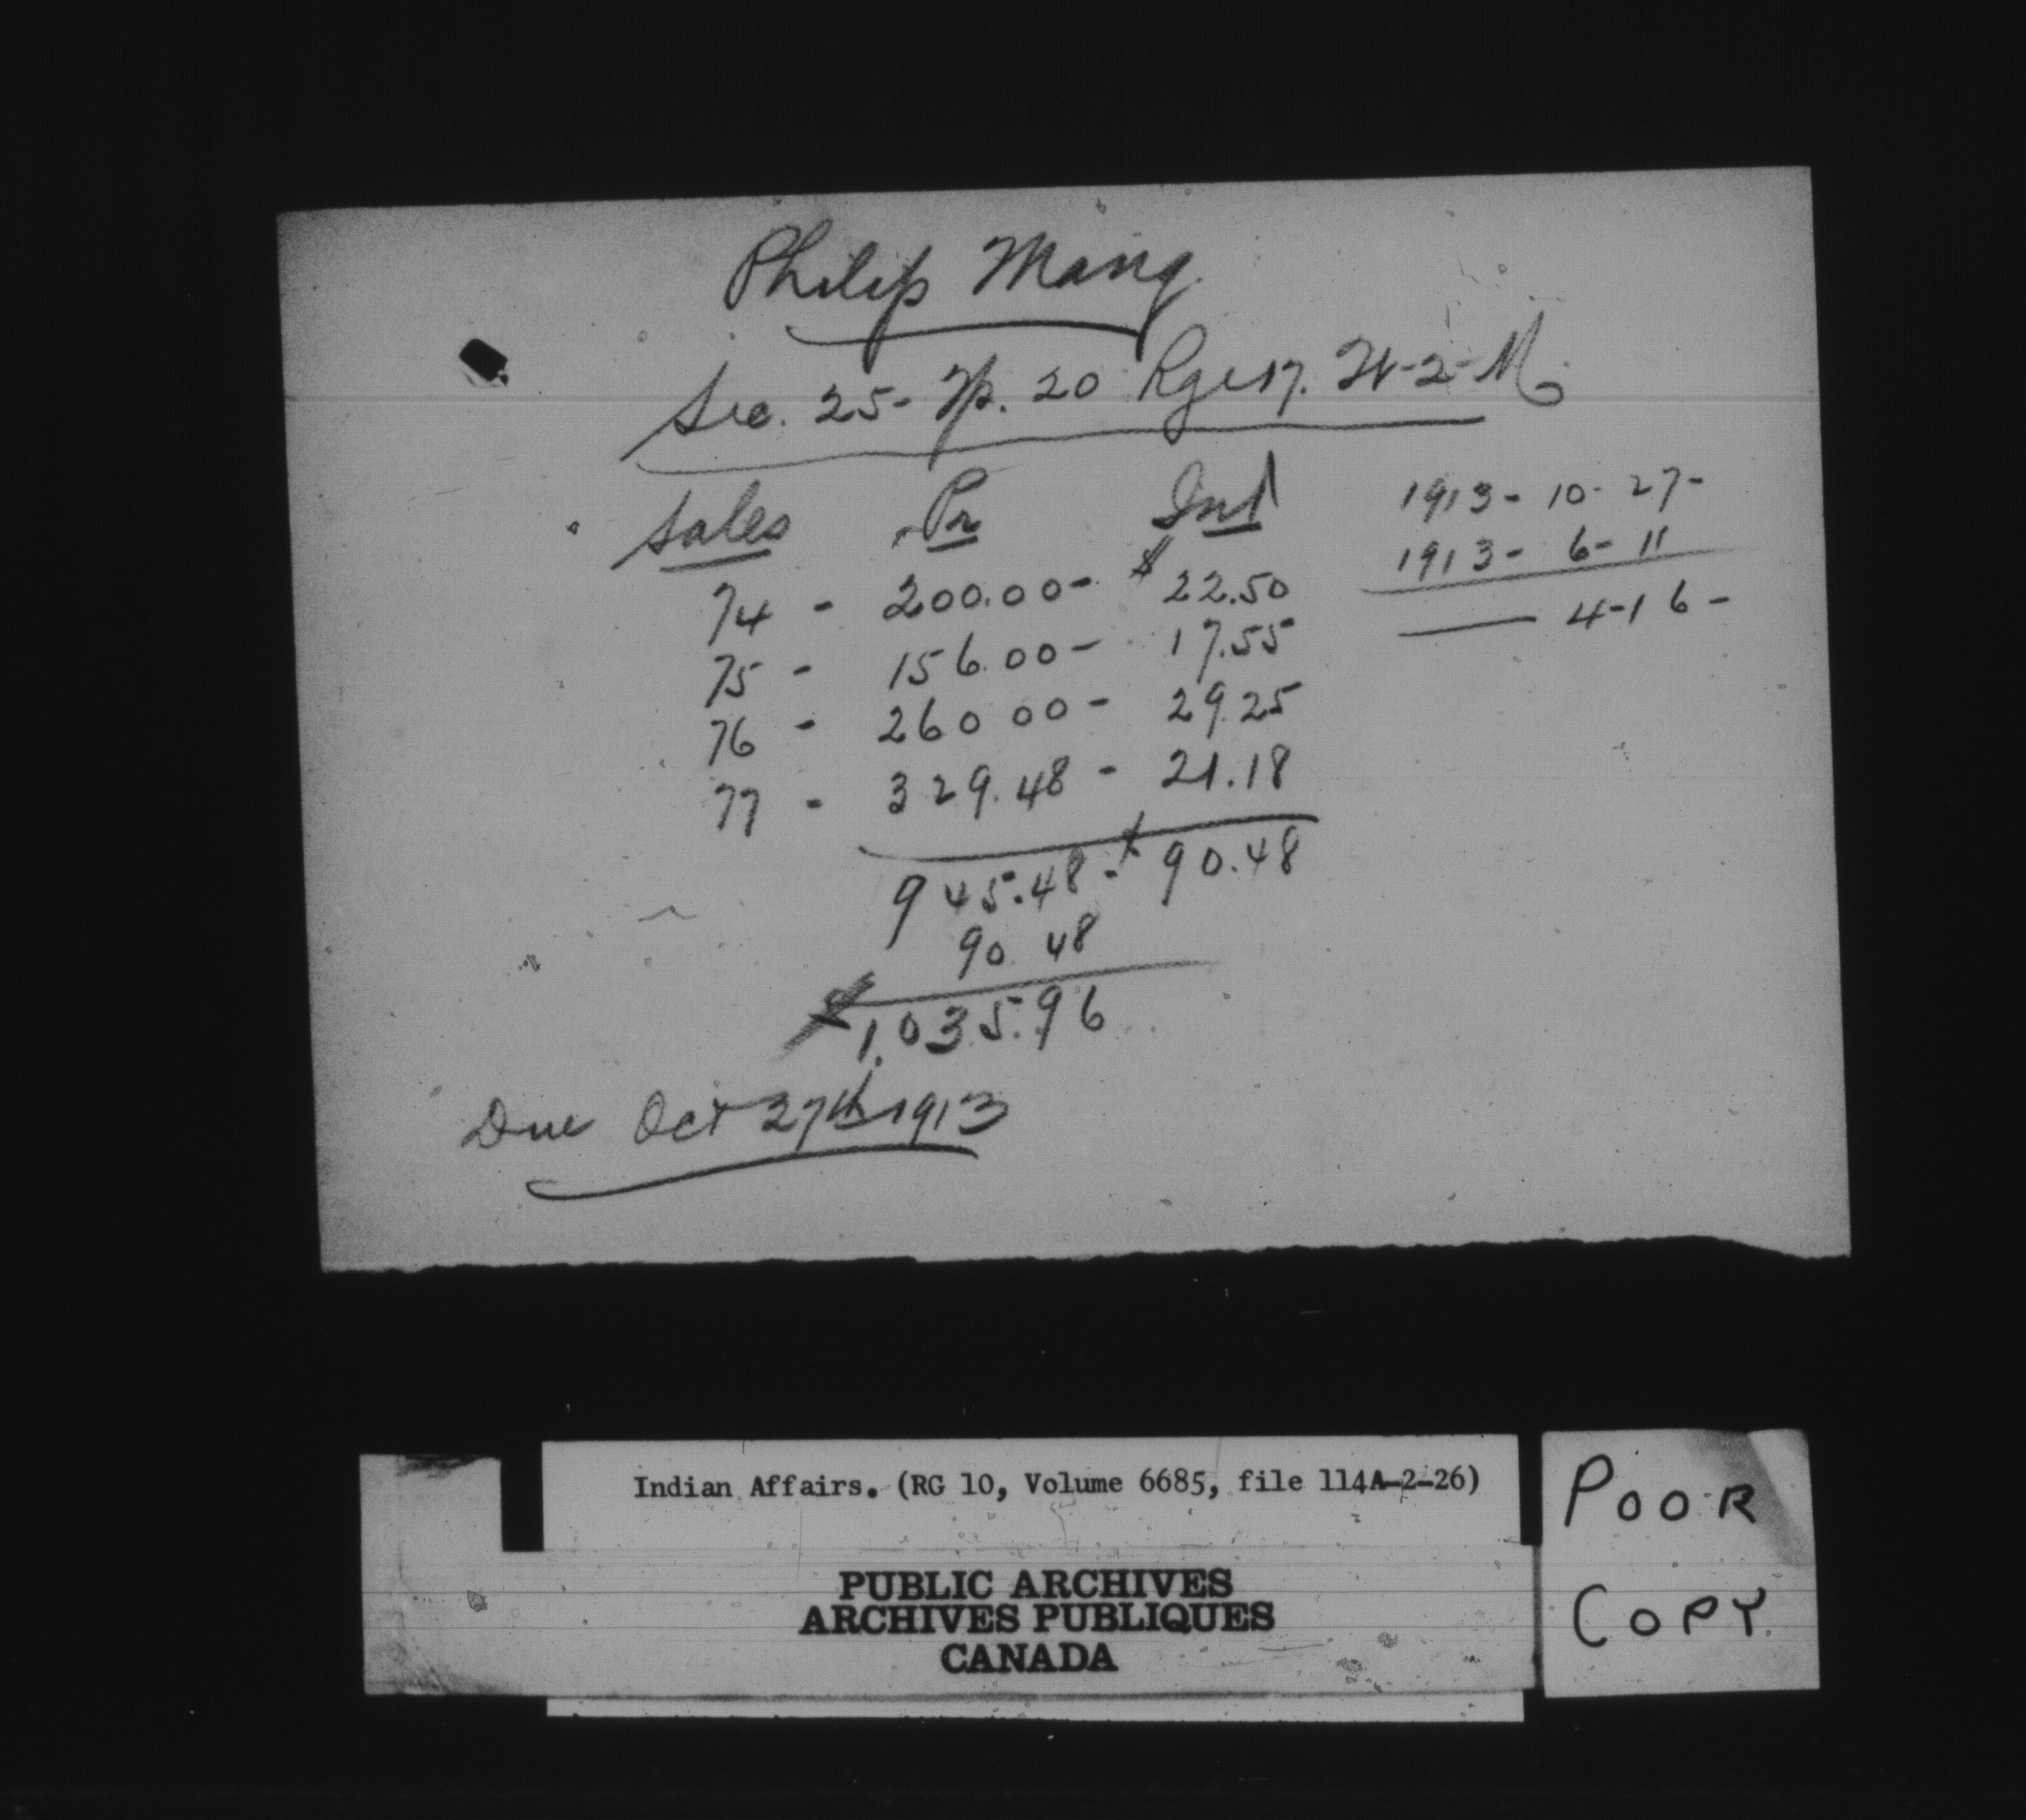 Philip Mang
Sec. 25- Tp. 20 Rge 17. W-2-M.
Sales Pr Int
1913- 10- 27-
1913- 6- 11
4-16-
74 - 200.00- $22.50
75 - 156.00- 17.55
76 - 260 00- 29.25
77 - 329.48 - 21.18
945.48 - $90.48
90 48
$1,035.96
Due Oct 27th 1913
Indian Affairs. (RG 10, Volume 6685, file 114A-2-26)
PUBLIC ARCHIVES
ARCHIVES PUBLIQUES
CANADA
POOR
COPY